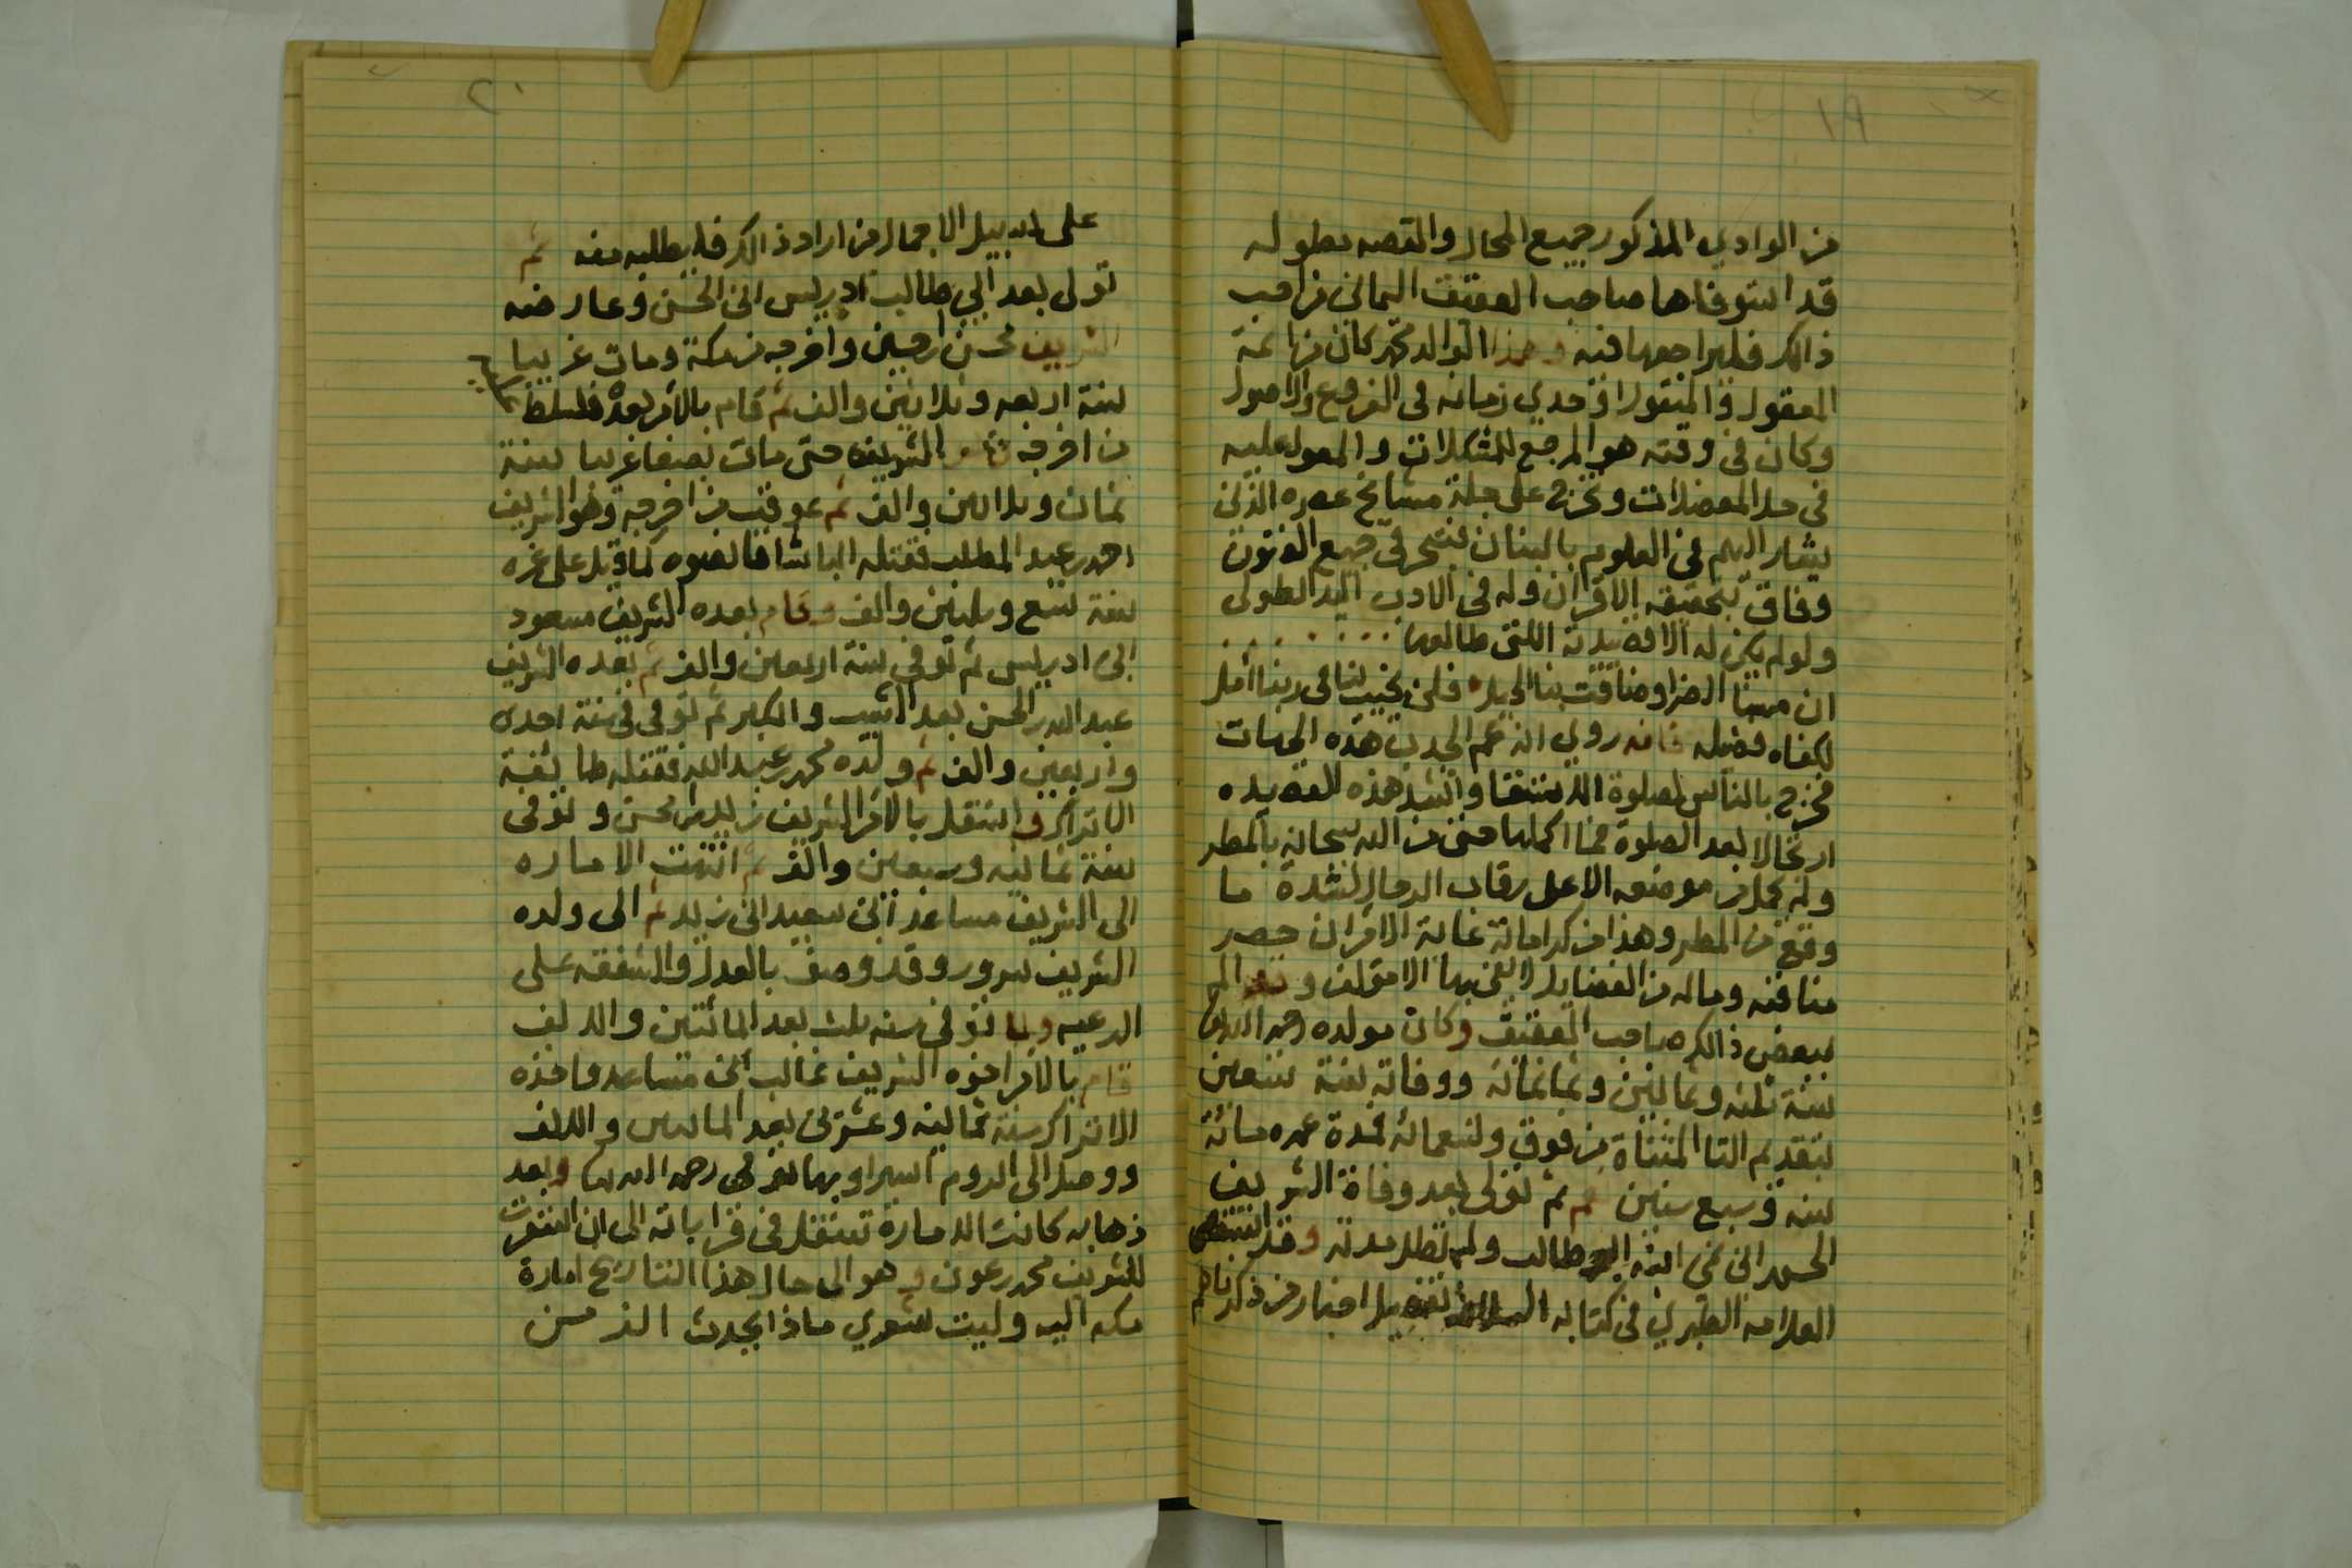 ١٩
من الوادي المذكور جميع المحال والقصه بطوله
قد استوفاها صاحب العقيق اليماني من احب
ذالك فليراجعها فيه وهذا الوالد محمد كان من ائمة
المعقول والمنقول اوحدي زمانه في الفروع والاصول
وكان في وقته هو المرجع للمشكلات والمعول عليه
في حل المعضلات وتخرج على جلة مشايخ عصره الذين
يشار اليهم في العلوم بالبنان تبحر في جميع الفنون
وفاق بتحقيقه الاقران وله في الادب اليد الطولى
ولو لم يكن له الا قصيدته اللتي طالعها
ان مسنا الضر او ضاقت بنا الحيل فلن يخيب لنا في ربنا امل
لكفاه فضيله فانه روي انه عم الجدب هذه الجهات
فخرج بالناس لصلوة الاستسقا وانشد هذه القصيده
ارتجالا بعد الصلوة فما اكملها حتى من الله سبحانه بالمطر
ولم يحمل من موضعه الا على رقاب الرجال لشدة ما
وقع من المطر وهذا من كراماته غاية الاقران حصر
مناقبه وماله من الفضايل لا يفي بها الا مؤلف وقد الم
ببعض ذالك صاحب العقيق وكان مولده رحمه الله
سنة ثلثه وثمانين وثمانمائه ووفاته سنة تسعين
بتقديم التا المثناة من فوق وتسعمائه فمدة عمره مائة
سنه وسبع سنين ثم تولى بعد وفاة الشريف
الحسن ابن نمي ابنه ابو طالب ولم تطل مدته وقد استقصى
العلامه الطبري في كتابه تفصيل اخبار من ذكرناهم
٢٠
على سبيل الاجمال من اراد ذالك فليطلبه منه ثم
تولى بعد ابي طالب ادريس ابن الحسن وعارضه
الشريف محسن بن حسين واخرجه من مكة ومات غريبا
سنة اربعه وثلاثين والف ثم قام بالامر بعده فسلط
من اخرجه الشريف حتى مات بصنعا غريبا سنة
ثمان وثلاثين والف ثم عوقب من اخرجه وهو الشريف
احمد بن عبد المطلب فقتله الباشا قانصوه لما قيل على غره
سنة تسع وثلثين والف وقام بعده الشريف مسعود
ابن ادريس ثم توفي سنة اربعين والف ثم بعده الشريف
عبد الله بن الحسن بعد الشيب والكبر ثم توفي في سنة احدى
واربعين والف ثم ولده محمد بن عبد الله فقتله طايفة
الاتراك واستقل بالامر الشريف زيد بن محسن وتوفي
سنة ثمانيه وسبعين والف ثم انتهت الاماره
الى الشريف مساعد ابن سعيد ابن زيد ثم الى ولده
الشريف سرور وقد وصف بالعدل والشفقه على
الرعيه ولما توفي سنه ثلث بعد المائتين والالف
قام بالامر اخوه الشريف غالب ابن مساعد واخذه
الاتراك سنة ثمانيه وعشرين بعد المائتين والالف
ووصل الى الروم اسيرا وبها توفي رحمه الله وبعد
ذهابه كانت الامارة تنتقل في قراباته الى ان استقرت
للشريف محمد بن عون وهو الى حال هذا التاريخ امارة
مكه اليه وليت شعري ماذا يحدث الزمن